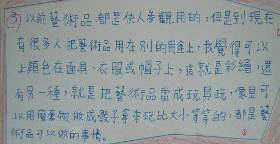 ③以前藝術品都是供人參觀用的，但是到現在
有很多人把藝術品用在別的用途上，我覺得可以
上顏色在面具、衣服或帽子上，這就是彩繪，還
有另一種，就是把藝術品當成玩具玩，像是可
以用廢棄物做成骰子拿來玩比大小等等的，都是藝
術品可以做的事情。